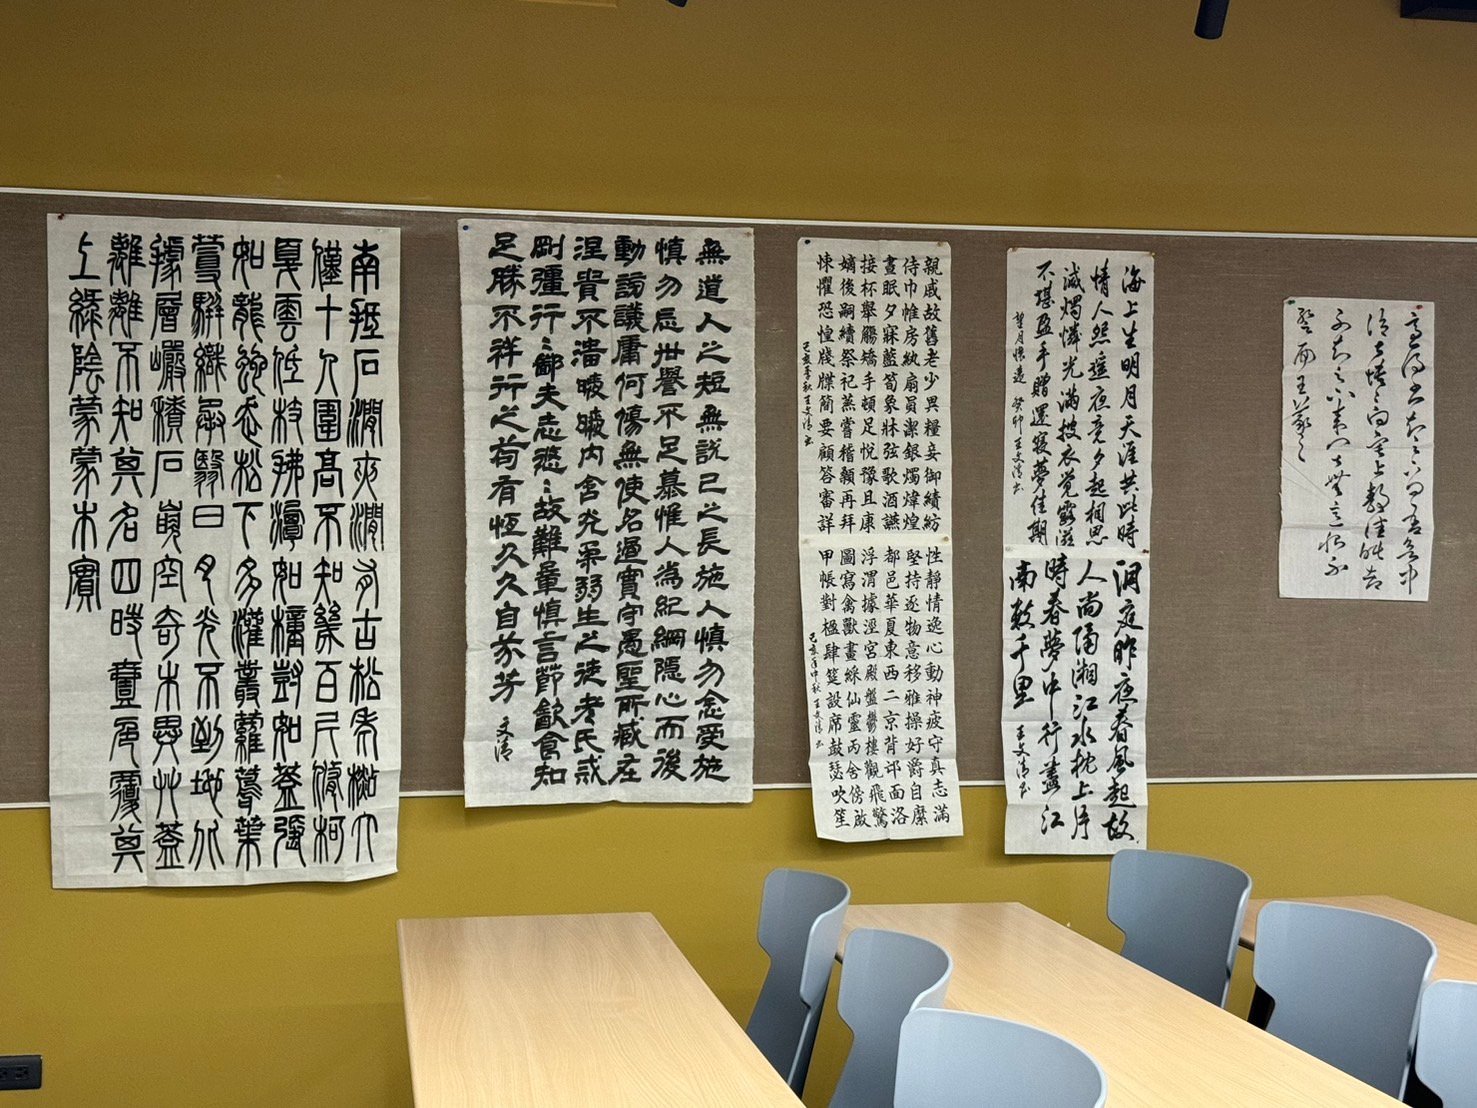 南抵石澗夾澗有古松老杉大
僅十人圍高不知幾百尺修柯
戛雲低枝拂潭如幢豎如蓋張
如龍蛇走松下多灌叢蘿蔦葉
蔓駢織承翳日月光不到地
據層巖積石嵌空奇木異草蓋
離離不知其名四時壹色覆其
上綠陰蒙蒙朱實
無道人之短無說己之長施人慎勿念受施
慎勿忘世譽不足慕惟人為紀綱隱心而後
動謗議庸何傷無使名過實守愚聖所臧在
涅貴不淄曖曖內含光柔弱生之徒老氏戒
剛彊行〻鄙夫志悠〻故難量慎言節飲食知
足勝不祥行之苟有恆久久自芬芳 文清
親戚故舊老少異糧妾御績紡
侍巾帷房紈扇員潔銀燭煒煌
晝眠夕寐藍筍象牀弦歌酒讌
接杯舉觴矯手頓足悅豫且康
嫡後嗣續祭祀蒸嘗稽顙再拜
悚懼恐惶牋牒簡要顧答審詳
己亥季秋王文清書
性靜情逸心動神疲守真志滿
堅持逐物意移雅操好爵自縻
都邑華夏東西二京背邙面洛
浮渭據涇宮殿盤鬱樓觀飛驚
圖寫禽獸畫綵仙靈丙舍傍啟
甲帳對楹肆筵設席鼓瑟吹笙
己亥年中秋王文清書
海上生明月天涯共此時
情人怨遙夜竟夕起相思
滅燭憐光滿披衣覺露滋
不堪盈手贈還寢夢佳期
望月懷遠 癸卯王文清書
洞庭昨夜春風起故
人尚隔湘江水枕上片
時春夢中行盡江
南數千里 王文清書